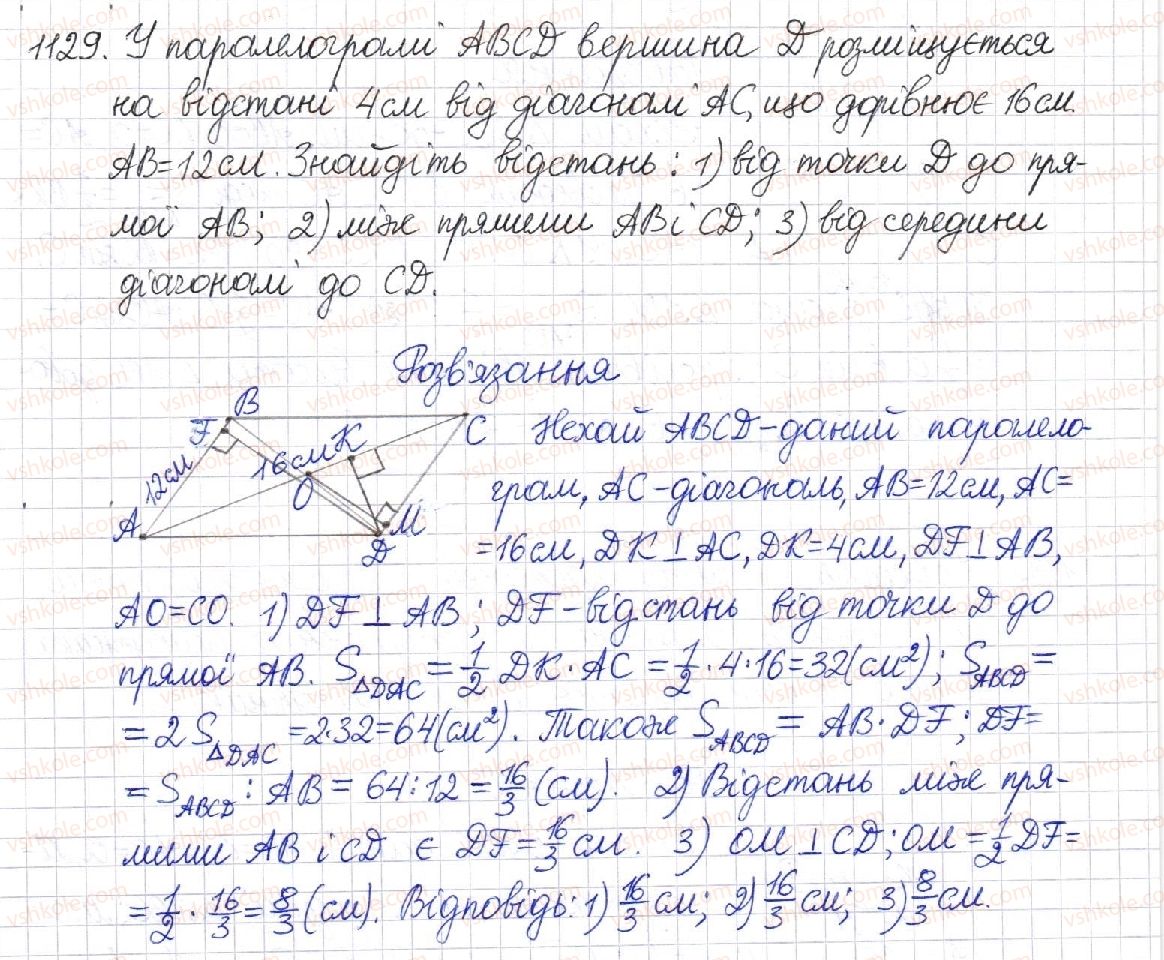 1129. У паралелограмі ABCD вершина D розміщується
на відстані 4см від діагоналі AC, що дорівнює 16см.
AB=12см. Знайдіть відстань: 1) від точки D до пря-
мої AB; 2) між прямими AB і CD; 3) від середини
діагоналі до CD.
Розв'язання
B
F
C
K
12см
16см
O
A
M
D
Нехай ABCD-даний парало-
грам, AC-діагональ, AB=12см, AC=
=16см, DK⊥AC, DK=4см, DF⊥AB,
AO=CO. 1) DF⊥AB; DF-відстань від точки D до
прямої AB. S△DAC = 1/2 DK·AC = 1/2·4·16=32(см²); SABCD=
=2S△DAC=2·32=64(см²). Також SABCD = AB·DF; DF=
=SABCD : AB = 64:12 = 16/3 (см). 2) Відстань між пря-
мими AB і CD є DF=16/3 см. 3) OM⊥CD; OM=1/2 DF=
=1/2·16/3=8/3 (см). Відповідь: 1) 16/3 см; 2) 16/3 см; 3) 8/3 см.